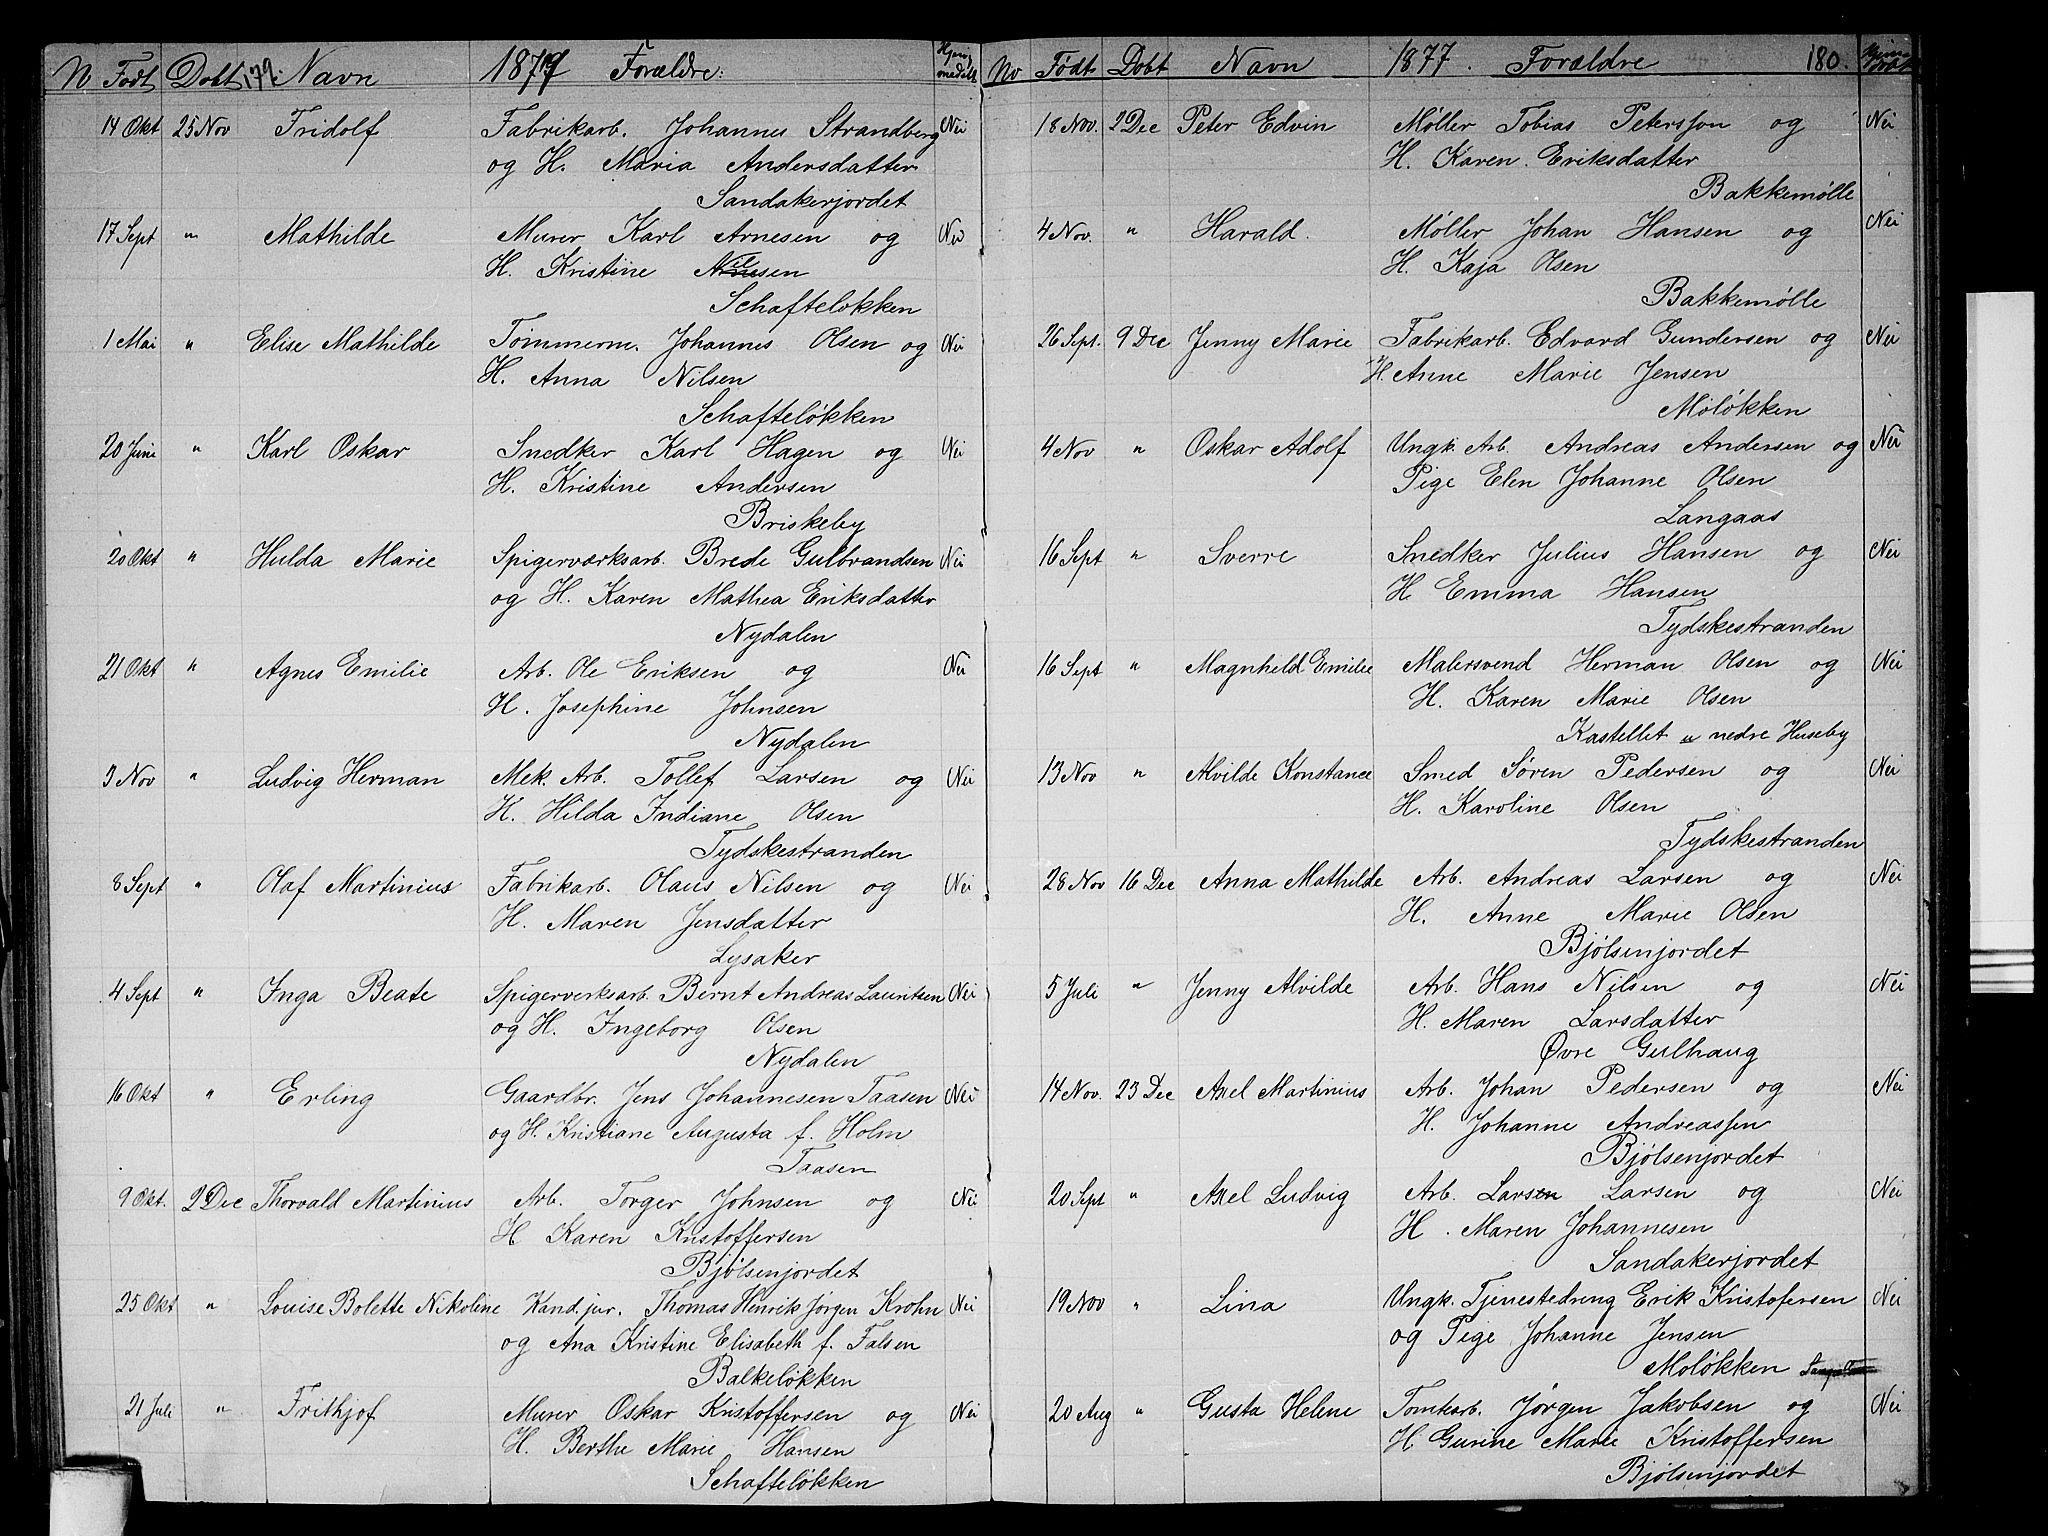 N Født Døbt 179. Navn 1877 Forældre: Hjemmedøbt
14 Okt 25 Nov Fridolf Fabrikarb. Johannes Strandberg Nei
og H. Maria Andersdatter
Sandakerjordet
17 Sept " Mathilde Murer Karl Arnesen og Nei
H. Kristine Nilsen
Schafteløkken
1 Mai " Elise Mathilde Tømmerm. Johannes Olsen og Nei
H. Anna Nilsen
Schafteløkken
20 Juni " Karl Oskar Snedker Karl Hagen og Nei
H. Kristine Andersen
Briskeby
20 Okt " Hulda Marie Spigerværksarb. Brede Gulbrandsen Nei
og H. Karen Mathea Eriksdatter
Nydalen
21 Okt " Agnes Emilie Arb. Ole Eriksen og Nei
H. Josephine Johnsen
Nydalen
3 Nov " Ludvig Herman Mek. Arb. Tollef Larsen og Nei
H. Hilda Indiane Olsen
Tydskestranden
8 Sept " Olaf Martinius Fabrikarb. Olaus Nilsen og Nei
H. Maren Jensdatter
Lysaker
4 Sept " Inga Beate Spigerverksarb. Bernt Andreas Lauritsen Nei
og H. Ingeborg Olsen
Nydalen
16 Okt " Erling Gaardbr. Jens Johannesen Taasen Nei
og H. Kristiane Augusta f. Holm
Taasen
9 Okt. 2 Dec Thorvald Martinius Arb. Torger Johnsen og Nei
H Karen Kristoffersen
Bjølsenjordet
25 Okt " Louise Bolette Nikoline Kand. jur. Thomas Henrik Jørgen Krohn Nei
og Ana Kristine Elisabeth f. Falsen
Balkeløkken
21 Juli " Frithjof Murer Oskar Kristoffersen og Nei
H. Berthe Marie Hansen
Schafteløkken
No Født Døbt Navn 1877. Forældre 180.
18 Nov. 2 Dec Peter Edvin Møller Tobias Petersson og Nei
H. Karen Eriksdatter
Bakkemølle
4 Nov. " Harald. Møller Johan Hansen og Nei
H. Kaja Olsen
Bakkemølle
26 Sept. 9 Dec Jenny Marie Fabrikarb. Edvard Gundersen og Nei
H. Anne Marie Jensen
Moløkken
4 Nov " Oskar Adolf Ungk. Arb. Andreas Andersen og Nei
Pige Elen Johanne Olsen
Langaas
16 Sept " Sverre Snedker Julius Hansen og Nei
H Emma Hansen
Tydskestranden
16 Sept " Magnhild Emilie Malersvend Herman Olsen og Nei
H. Karen Marie Olsen
Kastellet u nedre Huseby
13 Nov " Alvilde Konstance Smed Søren Pedersen og Nei
H. Karoline Olsen
Tydskestranden
28 Nov 16 Dec Anna Mathilde Arb. Andreas Larsen og Nei
H. Anne Marie Olsen
Bjølsenjordet
5 Juli " Jenny Alvilde Arb. Hans Nilsen og Nei
H. Maren Larsdatter
Øvre Gulhaug
14 Nov. 23 Dec Axel Martinius Arb. Johan Pedersen og Nei
H. Johanne Andreassen
Bjølsenjordet
20 Sept " Axel Ludvig Arb. Larsen Larsen og Nei
H. Maren Johannesen
Sandakerjordet
19 Nov " Lina Ungk. Tjenestedreng Erik Kristofersen Nei
og Pige Johanne Jensen
Moløkken
20 Aug " Gusta Helene Tomtarb. Jørgen Jakobsen og Nei
H. Gurine Marie Kristoffersen
Bjølsenjordet